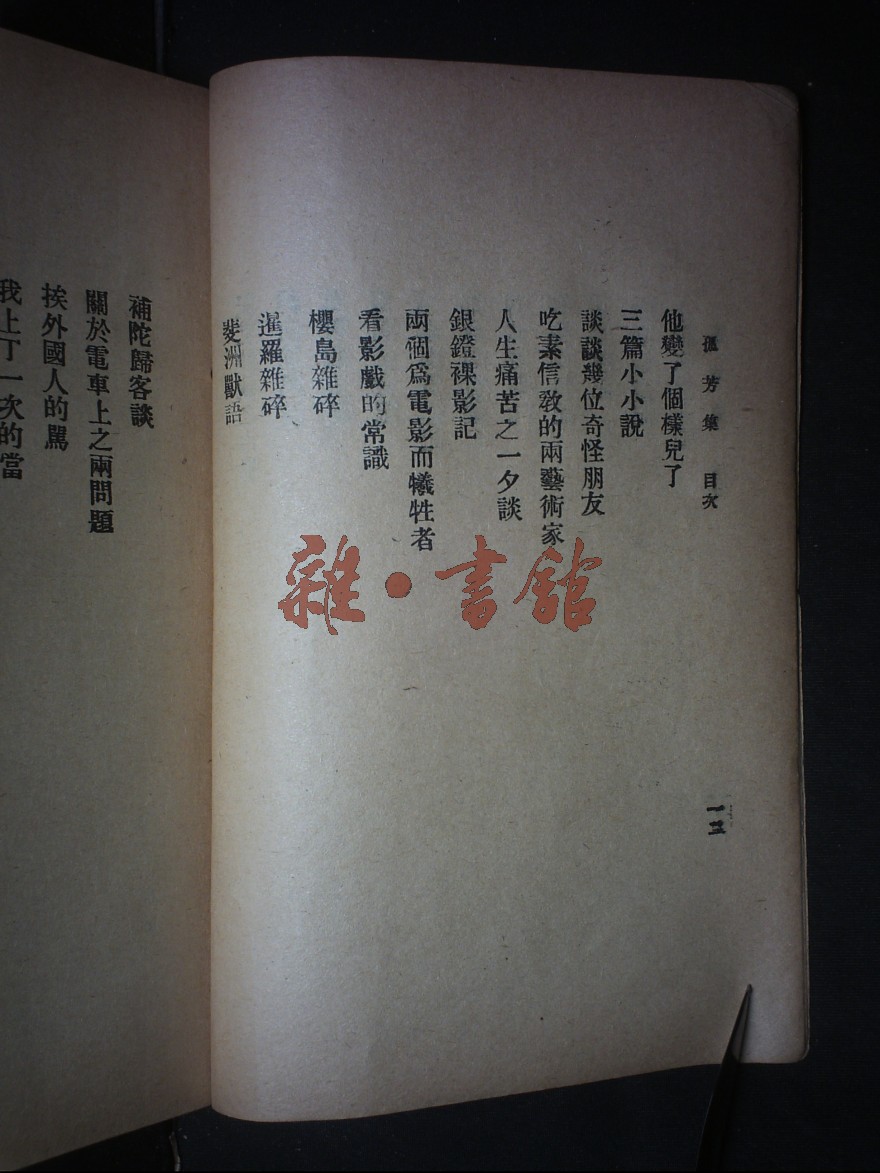 孤芳集 目次
他變了個樣兒了
三篇小小說
談談幾位奇怪朋友
吃素信教的兩藝術家
人生痛苦之一夕談
銀鐙裸影記
兩個爲電影而犧牲者
看影戲的常識
櫻島雜碎
暹羅雜碎
斐洲獸語
一三
補陀歸客談
關於電車上之兩問題
挨外國人的罵
我上了一次的當
雜·書館